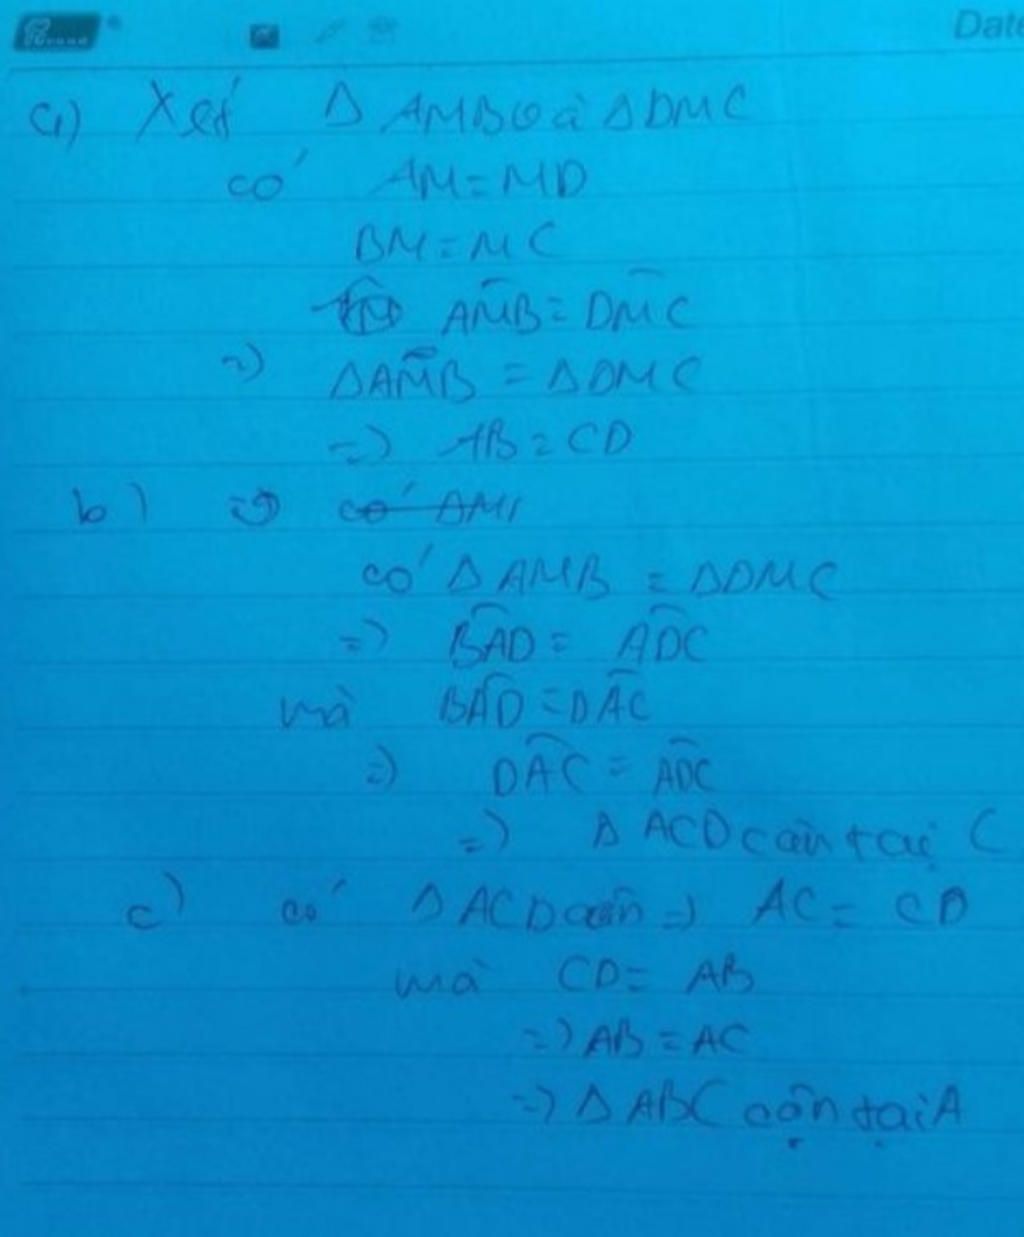 Date
a) Xét Δ AMB và Δ DMC
có AM = MD
BM = MC
AMB = DMC
=) ΔAMB = ΔDMC
=) AB = CD
b) =) có AMI
có Δ AMB = ΔDMC
=) BAD = ADC
mà BAD = DAC
=) DAC = ADC
=) Δ ACD cân tại C
c) có Δ ACD cân =) AC = CD
mà CD = AB
=) AB = AC
=) Δ ABC cân tại A